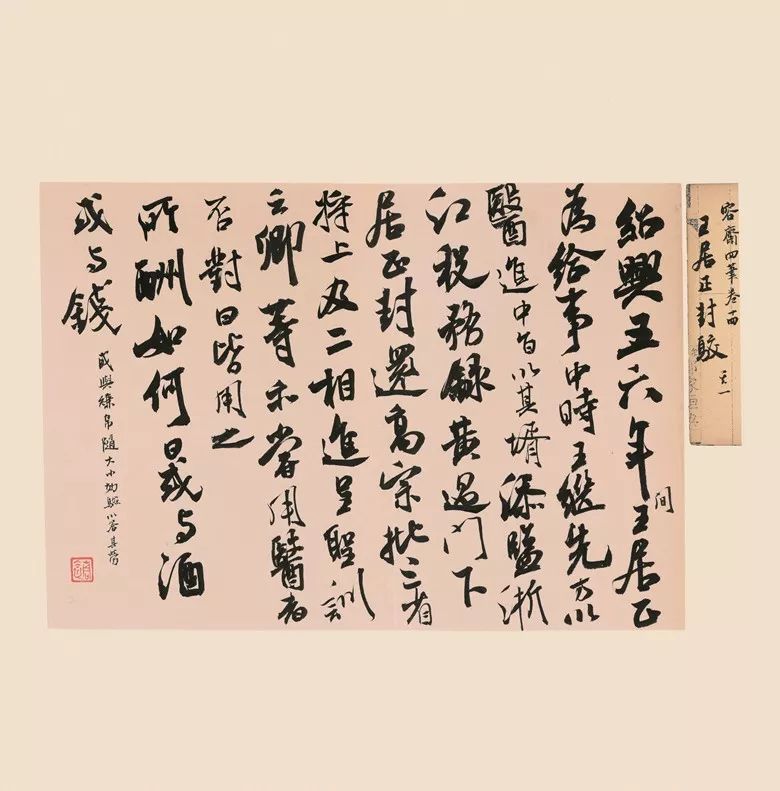 容齋四筆卷十四
王居正封駮
紹興五六年間王居正
為給事中時王繼先方以
醫進中旨以其壻添監浙
江稅務錄黃過門下
居正封還高宗批三省
將上及二相進呈聖訓
云卿等亦嘗用醫者
否對曰皆用之
所酬如何曰或与酒
或与錢
或與縑帛隨大小功驗以答其勞